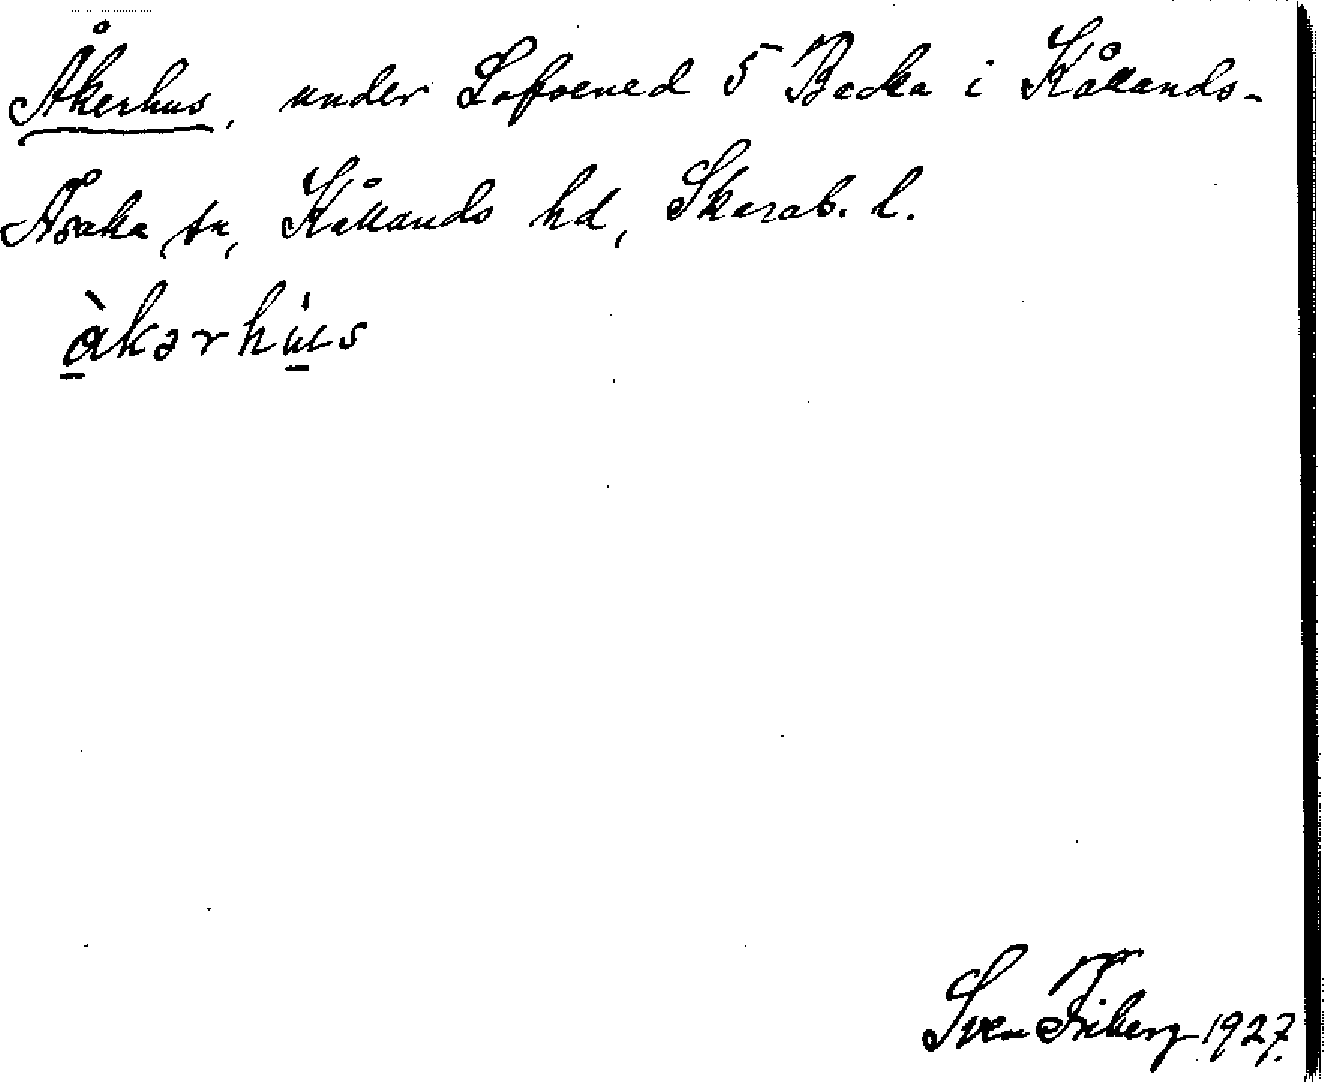 Åkerhus, under Lofvened 5 Backa i Kållands-
Åsaka sn, Kållands hd, Skarab. l.
àkərhu̍s
Sven Friberg 1927.